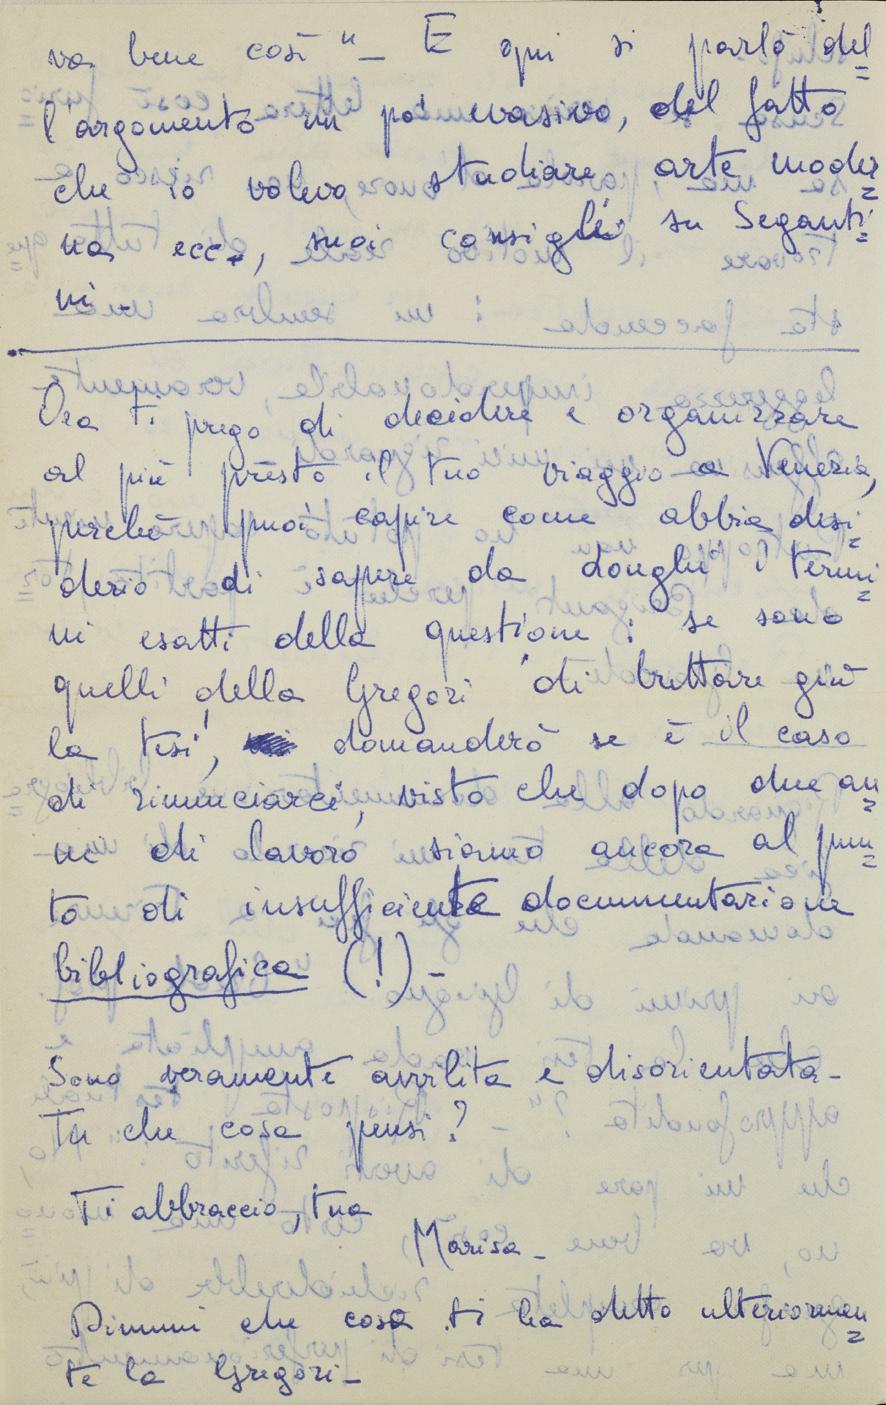 va bene così" – E qui si parlò del=
l'argomento un po' evasivo, del fatto
che io volevo studiare arte moder=
na ecc., suoi consigli su Seganti=
ni –
Ora ti prego di decidere e organizzare
al più presto il tuo viaggio a Venezia,
perché puoi capire come abbia desi=
derio di sapere da Longhi i termi=
ni esatti della questione: se sono
quelli della Gregori 'di buttare giù
la tesi', domanderò se è il caso
di rinunciarci, visto che dopo due an=
ni di lavoro siamo ancora al pun=
to di insufficiente documentazione
bibliografica (!) –
Sono veramente avvilita e disorientata –
Tu che cosa pensi?
Ti abbraccio, tua
Marisa –
Dimmi che cosa ti ha detto ulteriormen=
te la Gregori –